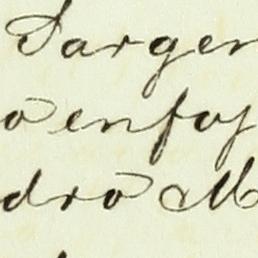 Sargen
o enfoy
dro M